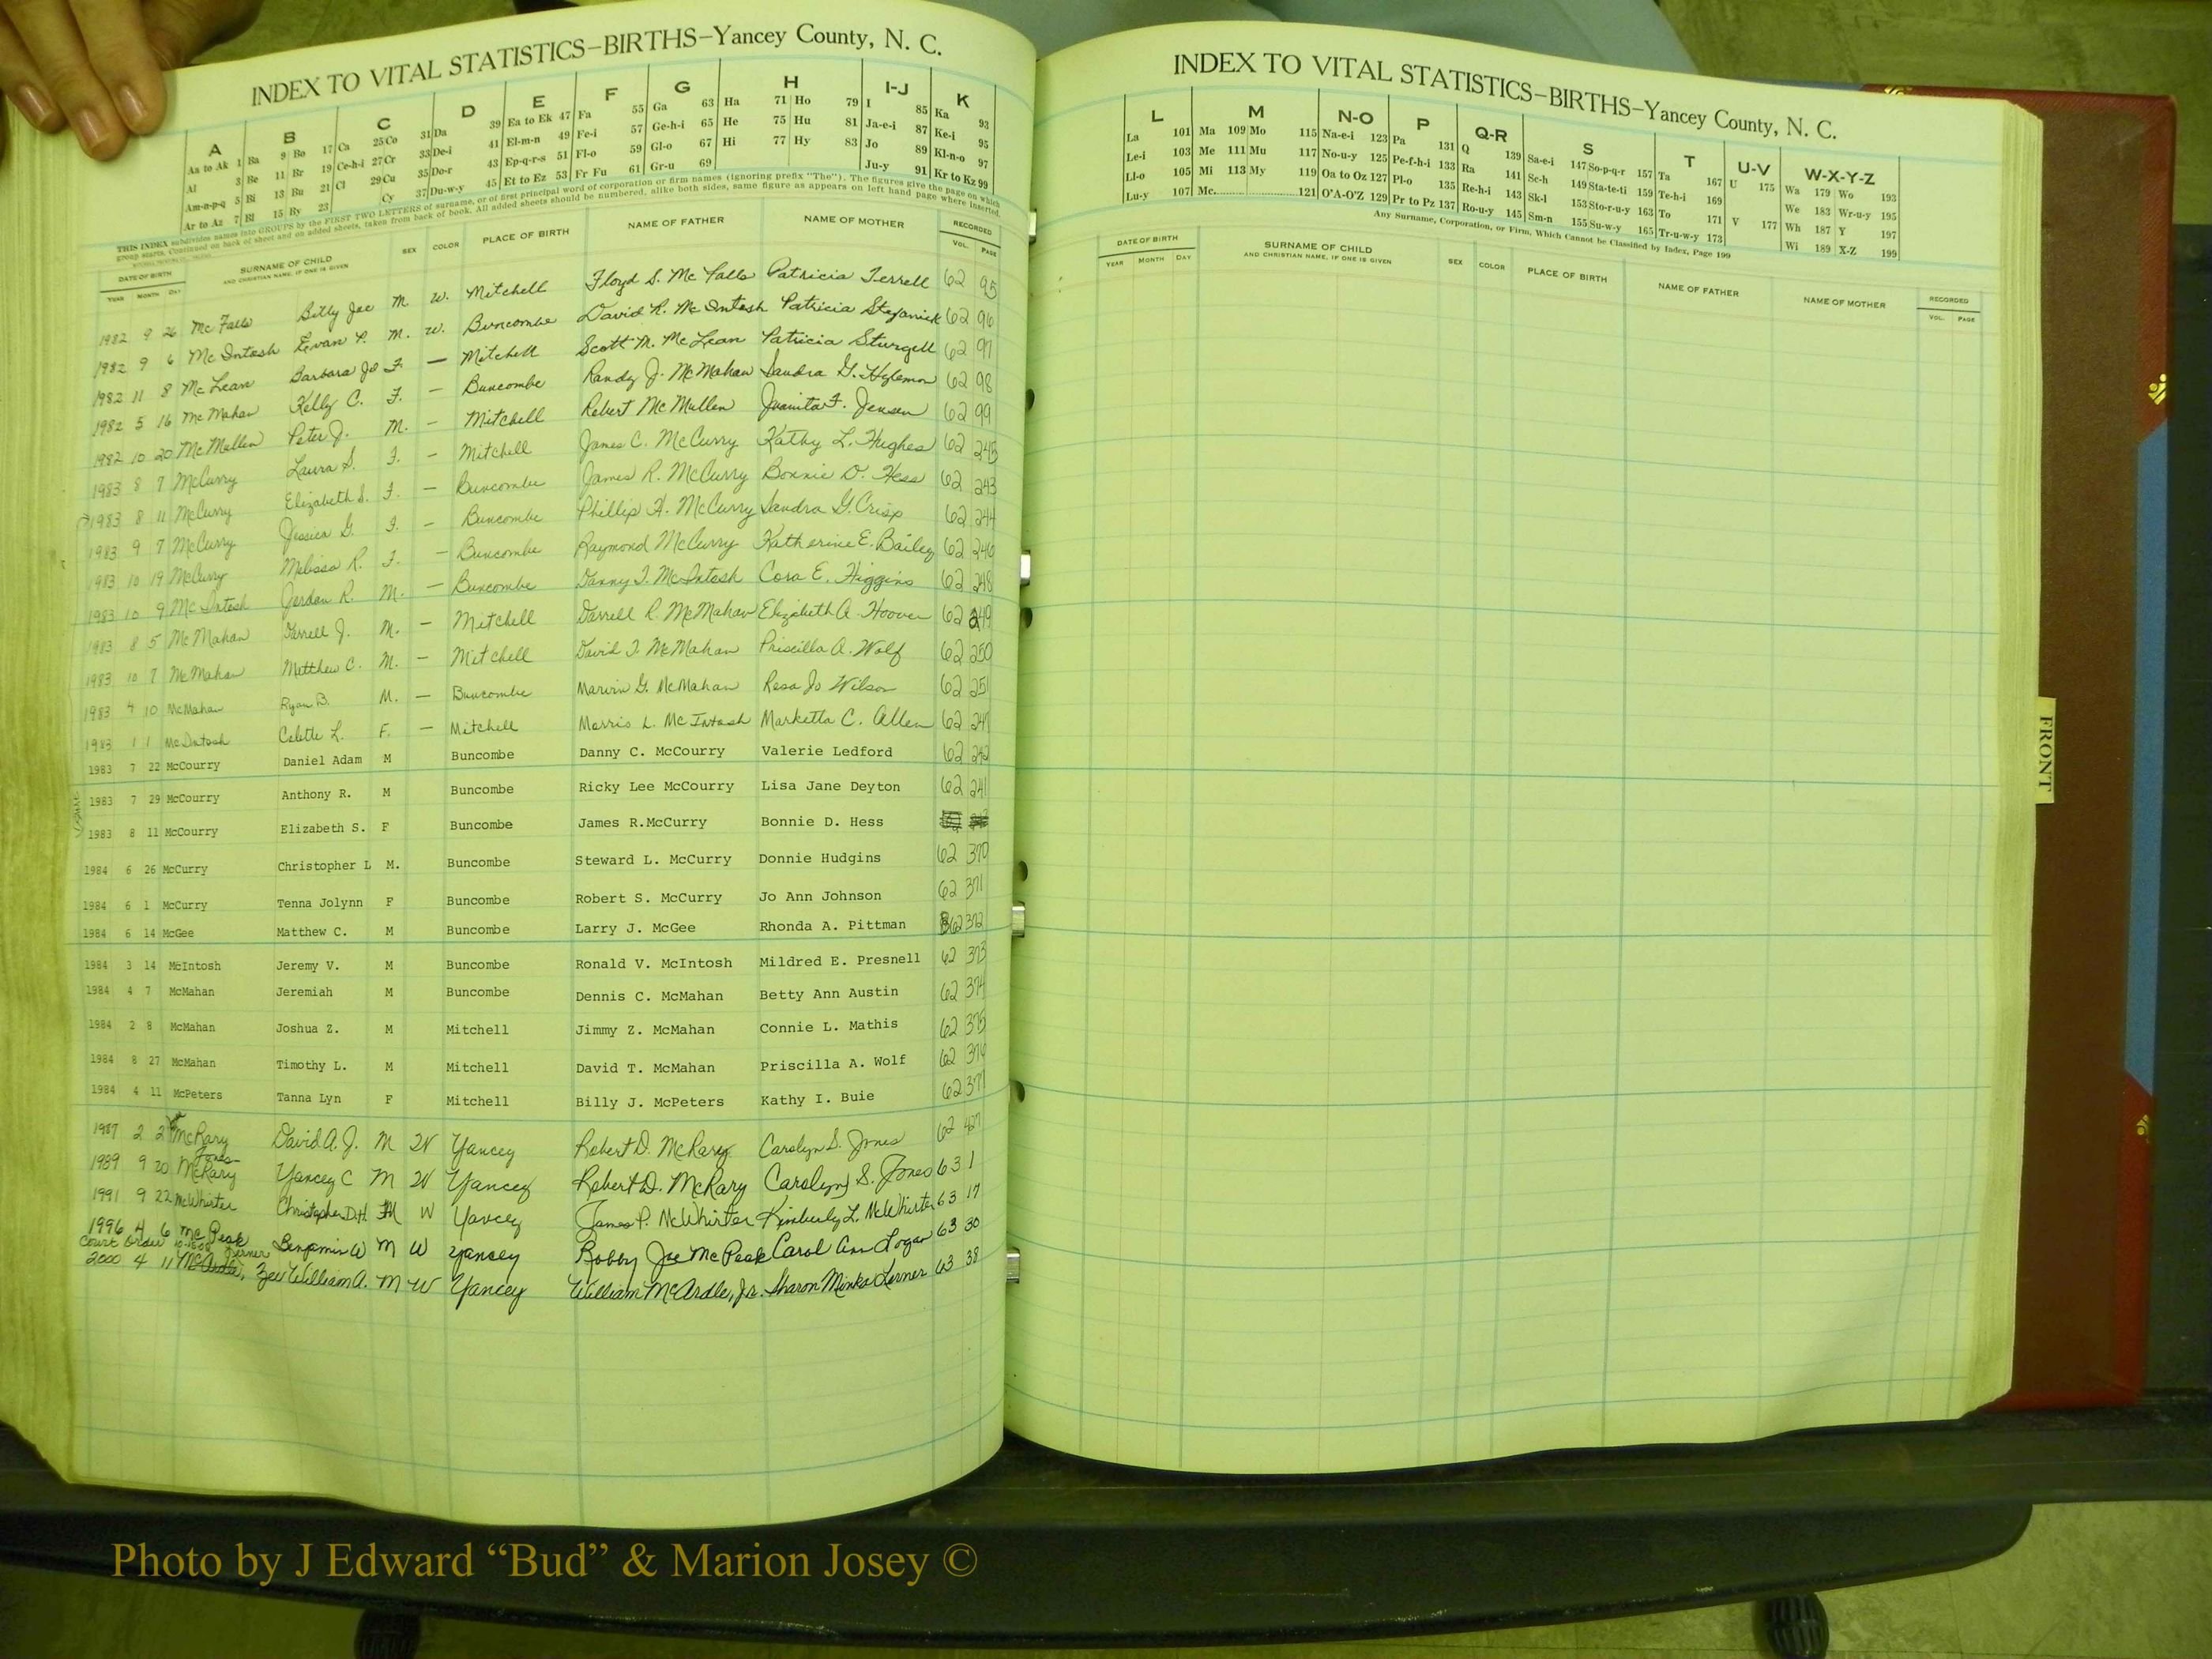 INDEX TO VITAL STATISTICS—BIRTHS—Yancey County, N. C.
A B C D E F G H I-J K
Aa to Ak 1 Ba 9 Bo 17 Ca 25 Co 31 Da 39 Ea to Ek 47 Fa 55 Ga 63 Ha 71 Ho 79 I 85 Ka 93
Al 3 Be 11 Br 19 Ce-h-i 27 Cr 33 De-i 41 El-m-n 49 Fe-i 57 Ge-h-i 65 He 75 Hu 81 Ja-e-i 87 Ke-i 95
Am-n-p-q 5 Bi 13 Bu 21 Cl 29 Cu 35 Do-r 43 Ep-q-r-s 51 Fl-o 59 Gl-o 67 Hi 77 Hy 83 Jo 89 Kl-n-o 97
Ar to Az 7 Bl 15 By 23 Cy 37 Du-w-y 45 Et to Ez 53 Fr Fu 61 Gr-u 69 Ju-y 91 Kr to Kz 99
THIS INDEX subdivides names into GROUPS by the FIRST TWO LETTERS of surname, or of first principal word of corporation or firm names (ignoring prefix "The"). The figures give the page on which
group starts. Continued on back of sheet and on added sheets, taken from back of book. All added sheets should be numbered, alike both sides, same figure as appears on left hand page where inserted.
DATE OF BIRTH SURNAME OF CHILD SEX COLOR PLACE OF BIRTH NAME OF FATHER NAME OF MOTHER RECORDED
YEAR MONTH DAY AND CHRISTIAN NAME, IF ONE IS GIVEN VOL. PAGE
1982 9 26 McFalls Billy Joe M. W. Mitchell Floyd S. McFalls Patricia Terrell 62 95
1982 9 6 McIntosh Evan P. M. W. Buncombe David R. McIntosh Patricia Stefanick 62 96
1982 11 8 McLean Barbara Jo F. — Mitchell Scott M. McLean Patricia Sturgell 62 97
1982 5 16 McMahan Kelly C. F. — Buncombe Randy J. McMahan Sandra G. Hylemon 62 98
1982 10 20 McMullen Peter J. M. — Mitchell Robert McMullen Juanita F. Jensen 62 99
1983 8 7 McCurry Laura S. F. — Mitchell James C. McCurry Kathy L. Hughes 62 245
1983 8 11 McCurry Elizabeth S. F. — Buncombe James R. McCurry Bonnie D. Hess 62 243
1983 9 7 McCurry Jessica G. F. — Buncombe Phillip H. McCurry Sandra G. Crisp 62 244
1983 10 19 McCurry Melissa R. F. — Buncombe Raymond McCurry Katherine E. Bailey 62 246
1983 10 9 McIntosh Jordan R. M. — Buncombe Danny T. McIntosh Cora E. Higgins 62 248
1983 8 5 McMahan Darrell J. M. — Mitchell Darrell R. McMahan Elizabeth A. Hoover 62 249
1983 10 7 McMahan Matthew C. M. — Mitchell David T. McMahan Priscilla A. Wolf 62 250
1983 4 10 McMahan Ryan B. M. — Buncombe Marvin G. McMahan Resa Jo Wilson 62 251
1983 1 1 McIntosh Colette L. F. — Mitchell Morris L. McIntosh Marketta C. Allen 62 247
1983 7 22 McCourry Daniel Adam M Buncombe Danny C. McCourry Valerie Ledford 62 242
1983 7 29 McCourry Anthony R. M Buncombe Ricky Lee McCourry Lisa Jane Deyton 62 241
1983 8 11 McCourry Elizabeth S. F Buncombe James R.McCurry Bonnie D. Hess
1984 6 26 McCurry Christopher L M. Buncombe Steward L. McCurry Donnie Hudgins 62 370
1984 6 1 McCurry Tenna Jolynn F Buncombe Robert S. McCurry Jo Ann Johnson 62 371
1984 6 14 McGee Matthew C. M Buncombe Larry J. McGee Rhonda A. Pittman 62 372
1984 3 14 McIntosh Jeremy V. M Buncombe Ronald V. McIntosh Mildred E. Presnell 62 373
1984 4 7 McMahan Jeremiah M Buncombe Dennis C. McMahan Betty Ann Austin 62 374
1984 2 8 McMahan Joshua Z. M Mitchell Jimmy Z. McMahan Connie L. Mathis 62 375
1984 8 27 McMahan Timothy L. M Mitchell David T. McMahan Priscilla A. Wolf 62 376
1984 4 11 McPeters Tanna Lyn F Mitchell Billy J. McPeters Kathy I. Buie 62 377
1987 2 2 McRary David A. J. M W Yancey Robert D. McRary Carolyn S. Jones 62 427
Jones
1989 9 20 McRary Yancey C M W Yancey Robert D. McRary Carolyn S. Jones 63 1
1991 9 22 McWhirter Christopher D.H. M W Yancey James P. McWhirter Kimberly L. McWhirter 63 17
1996 4 6 McPeak Benjamin W M W Yancey Bobby Joe McPeak Carol Ann Logan 63 30
Court Order Lerner
2000 4 11 McArdle, Zev William A. M W Yancey William McArdle, Jr. Sharon Minka Lerner 63 38
INDEX TO VITAL STATISTICS—BIRTHS—Yancey County, N. C.
L M N-O P Q-R S T U-V W-X-Y-Z
La 101 Ma 109 Mo 115 Na-e-i 123 Pa 131 Q 139 Sa-e-i 147 So-p-q-r 157 Ta 167 U 175 Wa 179 Wo 193
Le-i 103 Me 111 Mu 117 No-u-y 125 Pe-f-h-i 133 Ra 141 Sc-h 149 Sta-te-ti 159 Te-h-i 169 We 183 Wr-u-y 195
Ll-o 105 Mi 113 My 119 Oa to Oz 127 Pl-o 135 Re-h-i 143 Sk-l 153 Sto-r-u-y 163 To 171 V 177 Wh 187 Y 197
Lu-y 107 Mc 121 O'A-O'Z 129 Pr to Pz 137 Ro-u-y 145 Sm-n 155 Su-w-y 165 Tr-u-w-y 173 Wi 189 X-Z 199
Any Surname, Corporation, or Firm, Which Cannot be Classified by Index, Page 199
DATE OF BIRTH SURNAME OF CHILD SEX COLOR PLACE OF BIRTH NAME OF FATHER NAME OF MOTHER RECORDED
YEAR MONTH DAY AND CHRISTIAN NAME, IF ONE IS GIVEN VOL. PAGE
FRONT
Photo by J Edward “Bud” & Marion Josey ©